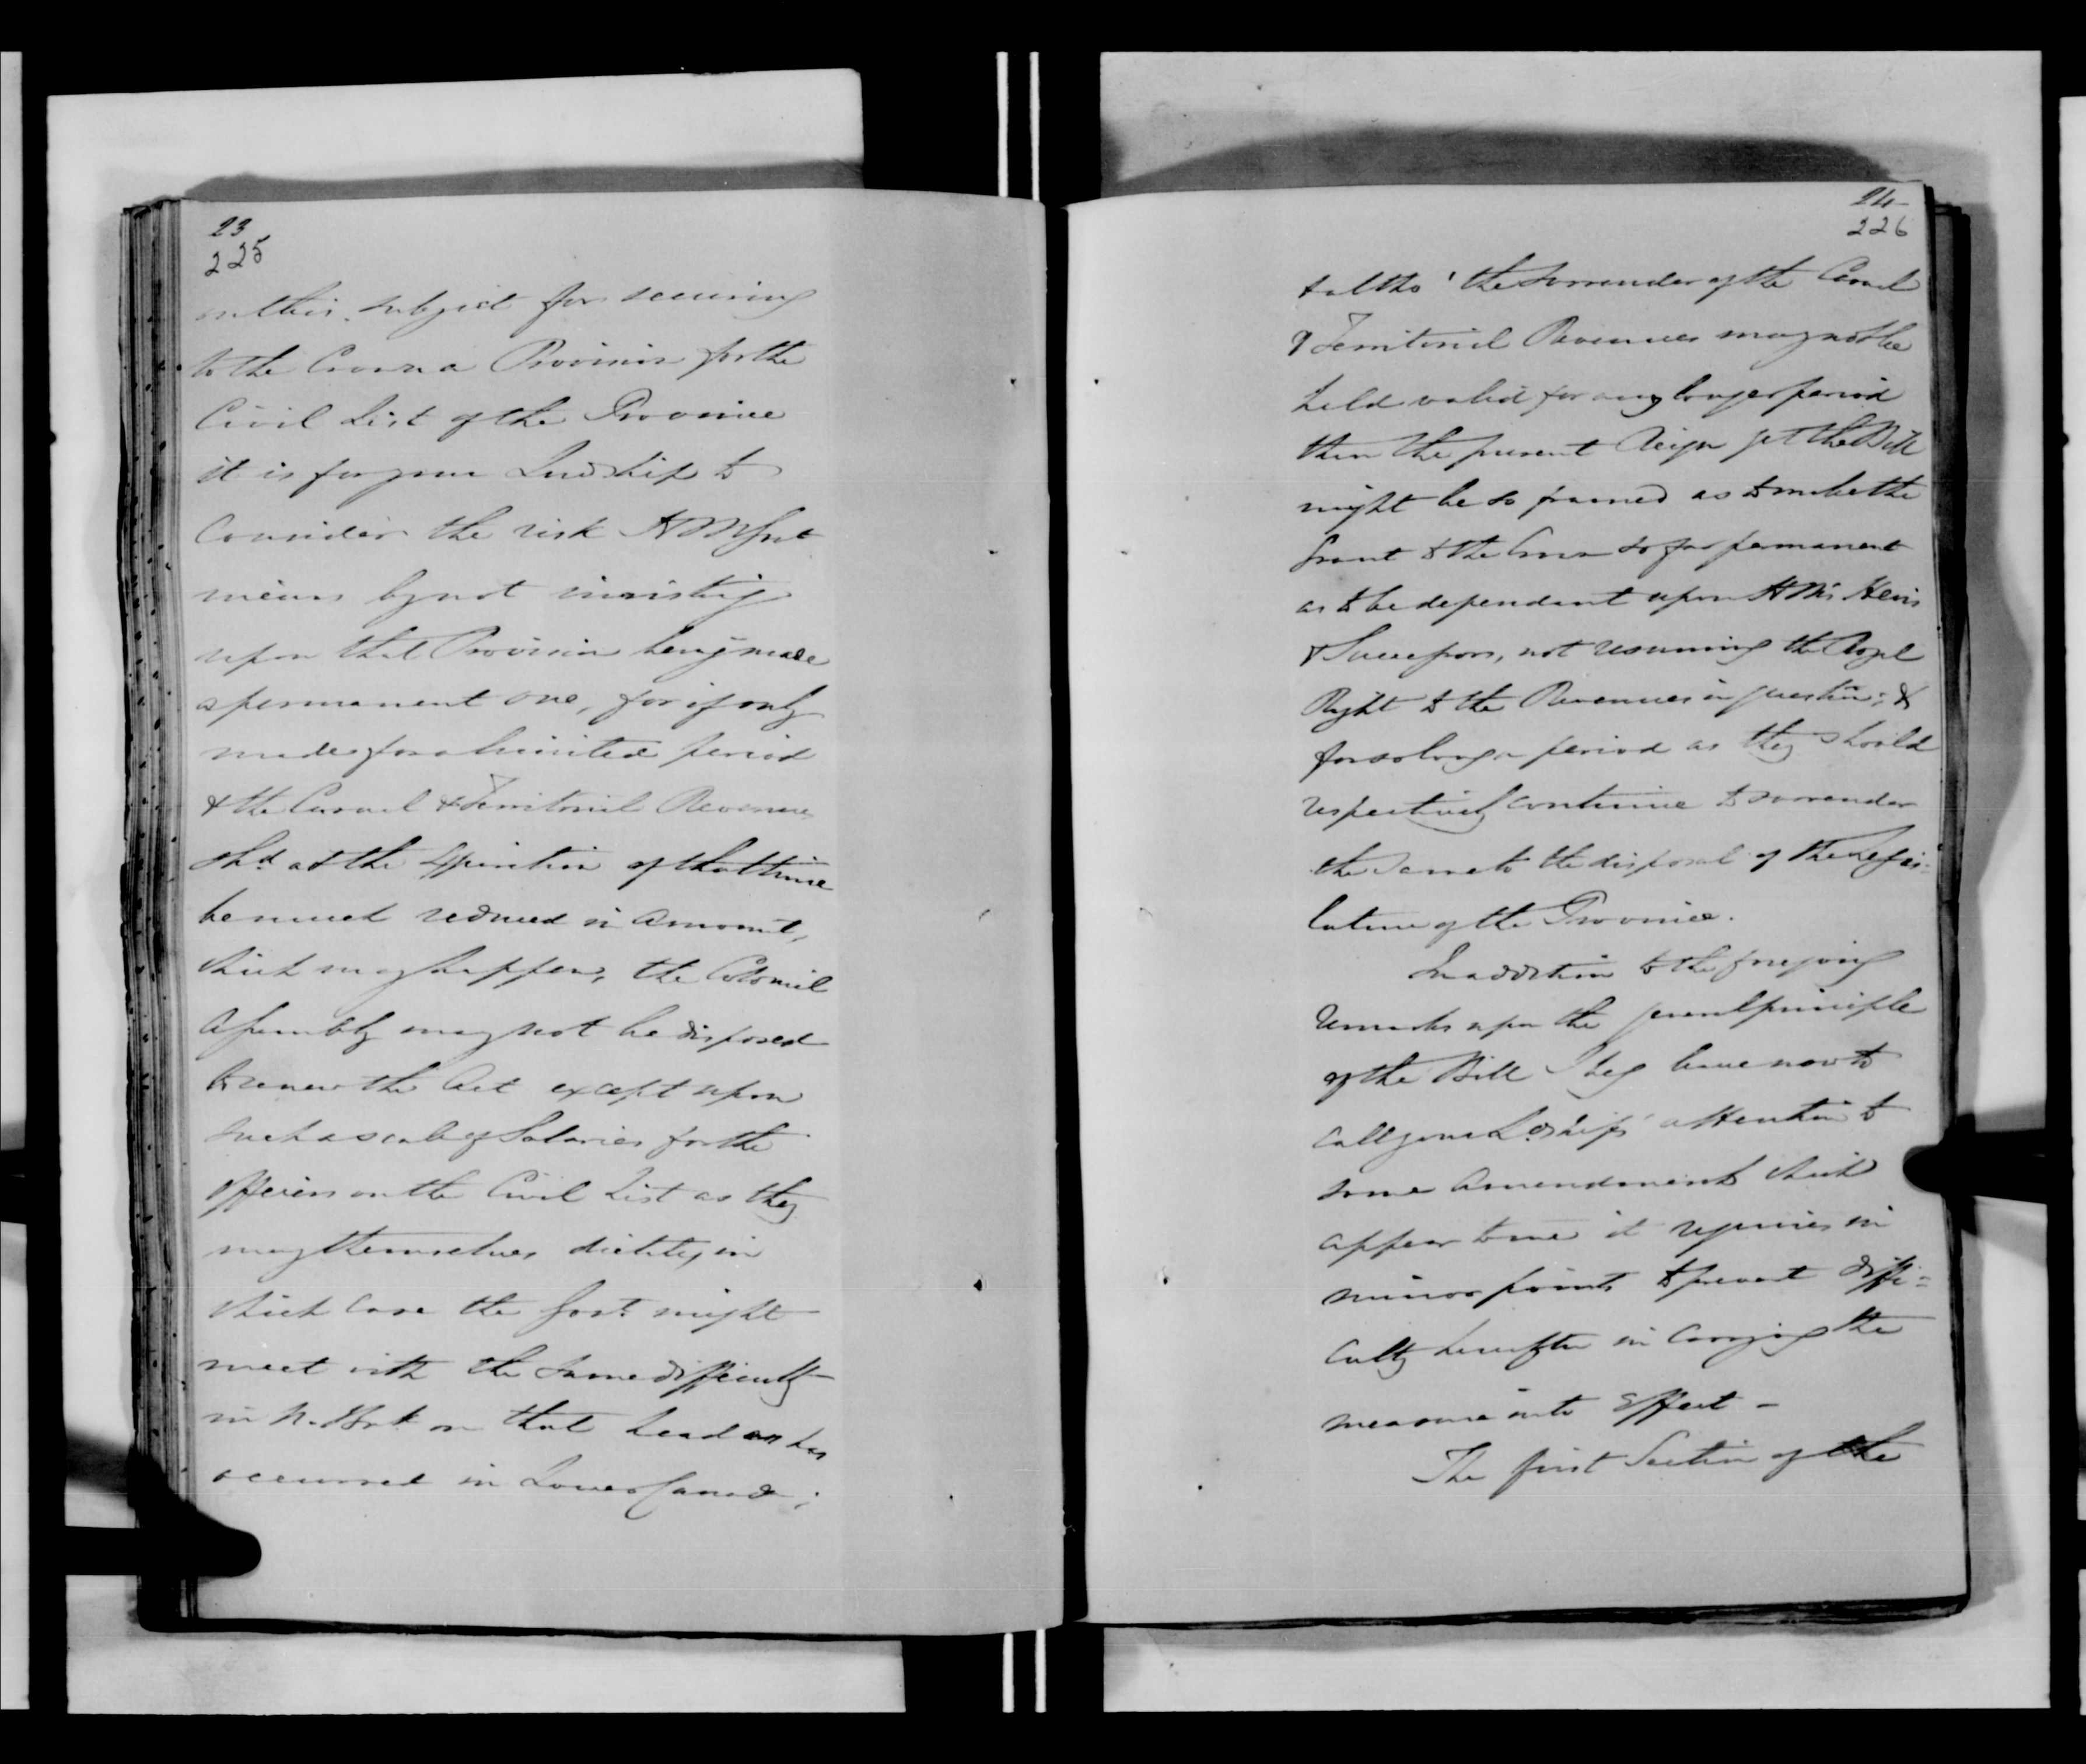 23
225
on this subject for securing
to the Crown a Provision for the
Civil List of the Province
it is for your Lordship to
Consider the risk H M Govt
incurs by not insisting
upon that Provision being made
a permanent one, for if only
made for a limited period
& the Casual & Territorial Revenues
shd at the Expiration of that time
be much reduced in Amount,
which may happen, the Colonial
Assembly may not be disposed
to renew the Act except upon
such a scale of Salaries for the
Officers on the Civil List as they
may themselves dictate, in
which Case the Govt might
meet with the same difficulty
in N. Bruk on that head as has
occurred in Lower Canada;
24
226
& altho' the surrender of the Casual
& Territorial Revenues may not be
held valid for any longer period
than the present Reign yet the Bill
might be so framed as to make the
Grant to the Crown so far permanent
as to be dependant upon H M's Heirs
& Successors, not resuming the Royal
Right to the Revenues in question; &
for so long a period as they should
respectively continue to surrender
the same to the disposal of the Legis-
lature of the Province.
In addition to the foregoing
Remarks upon the general principle
of the Bill I beg leave now to
call your Lordship's attention to
some Amendments which
appear to me it requires in
minor points to prevent diffi-
culty hereafter in Carrying the
measure into Effect -
The first Section of the